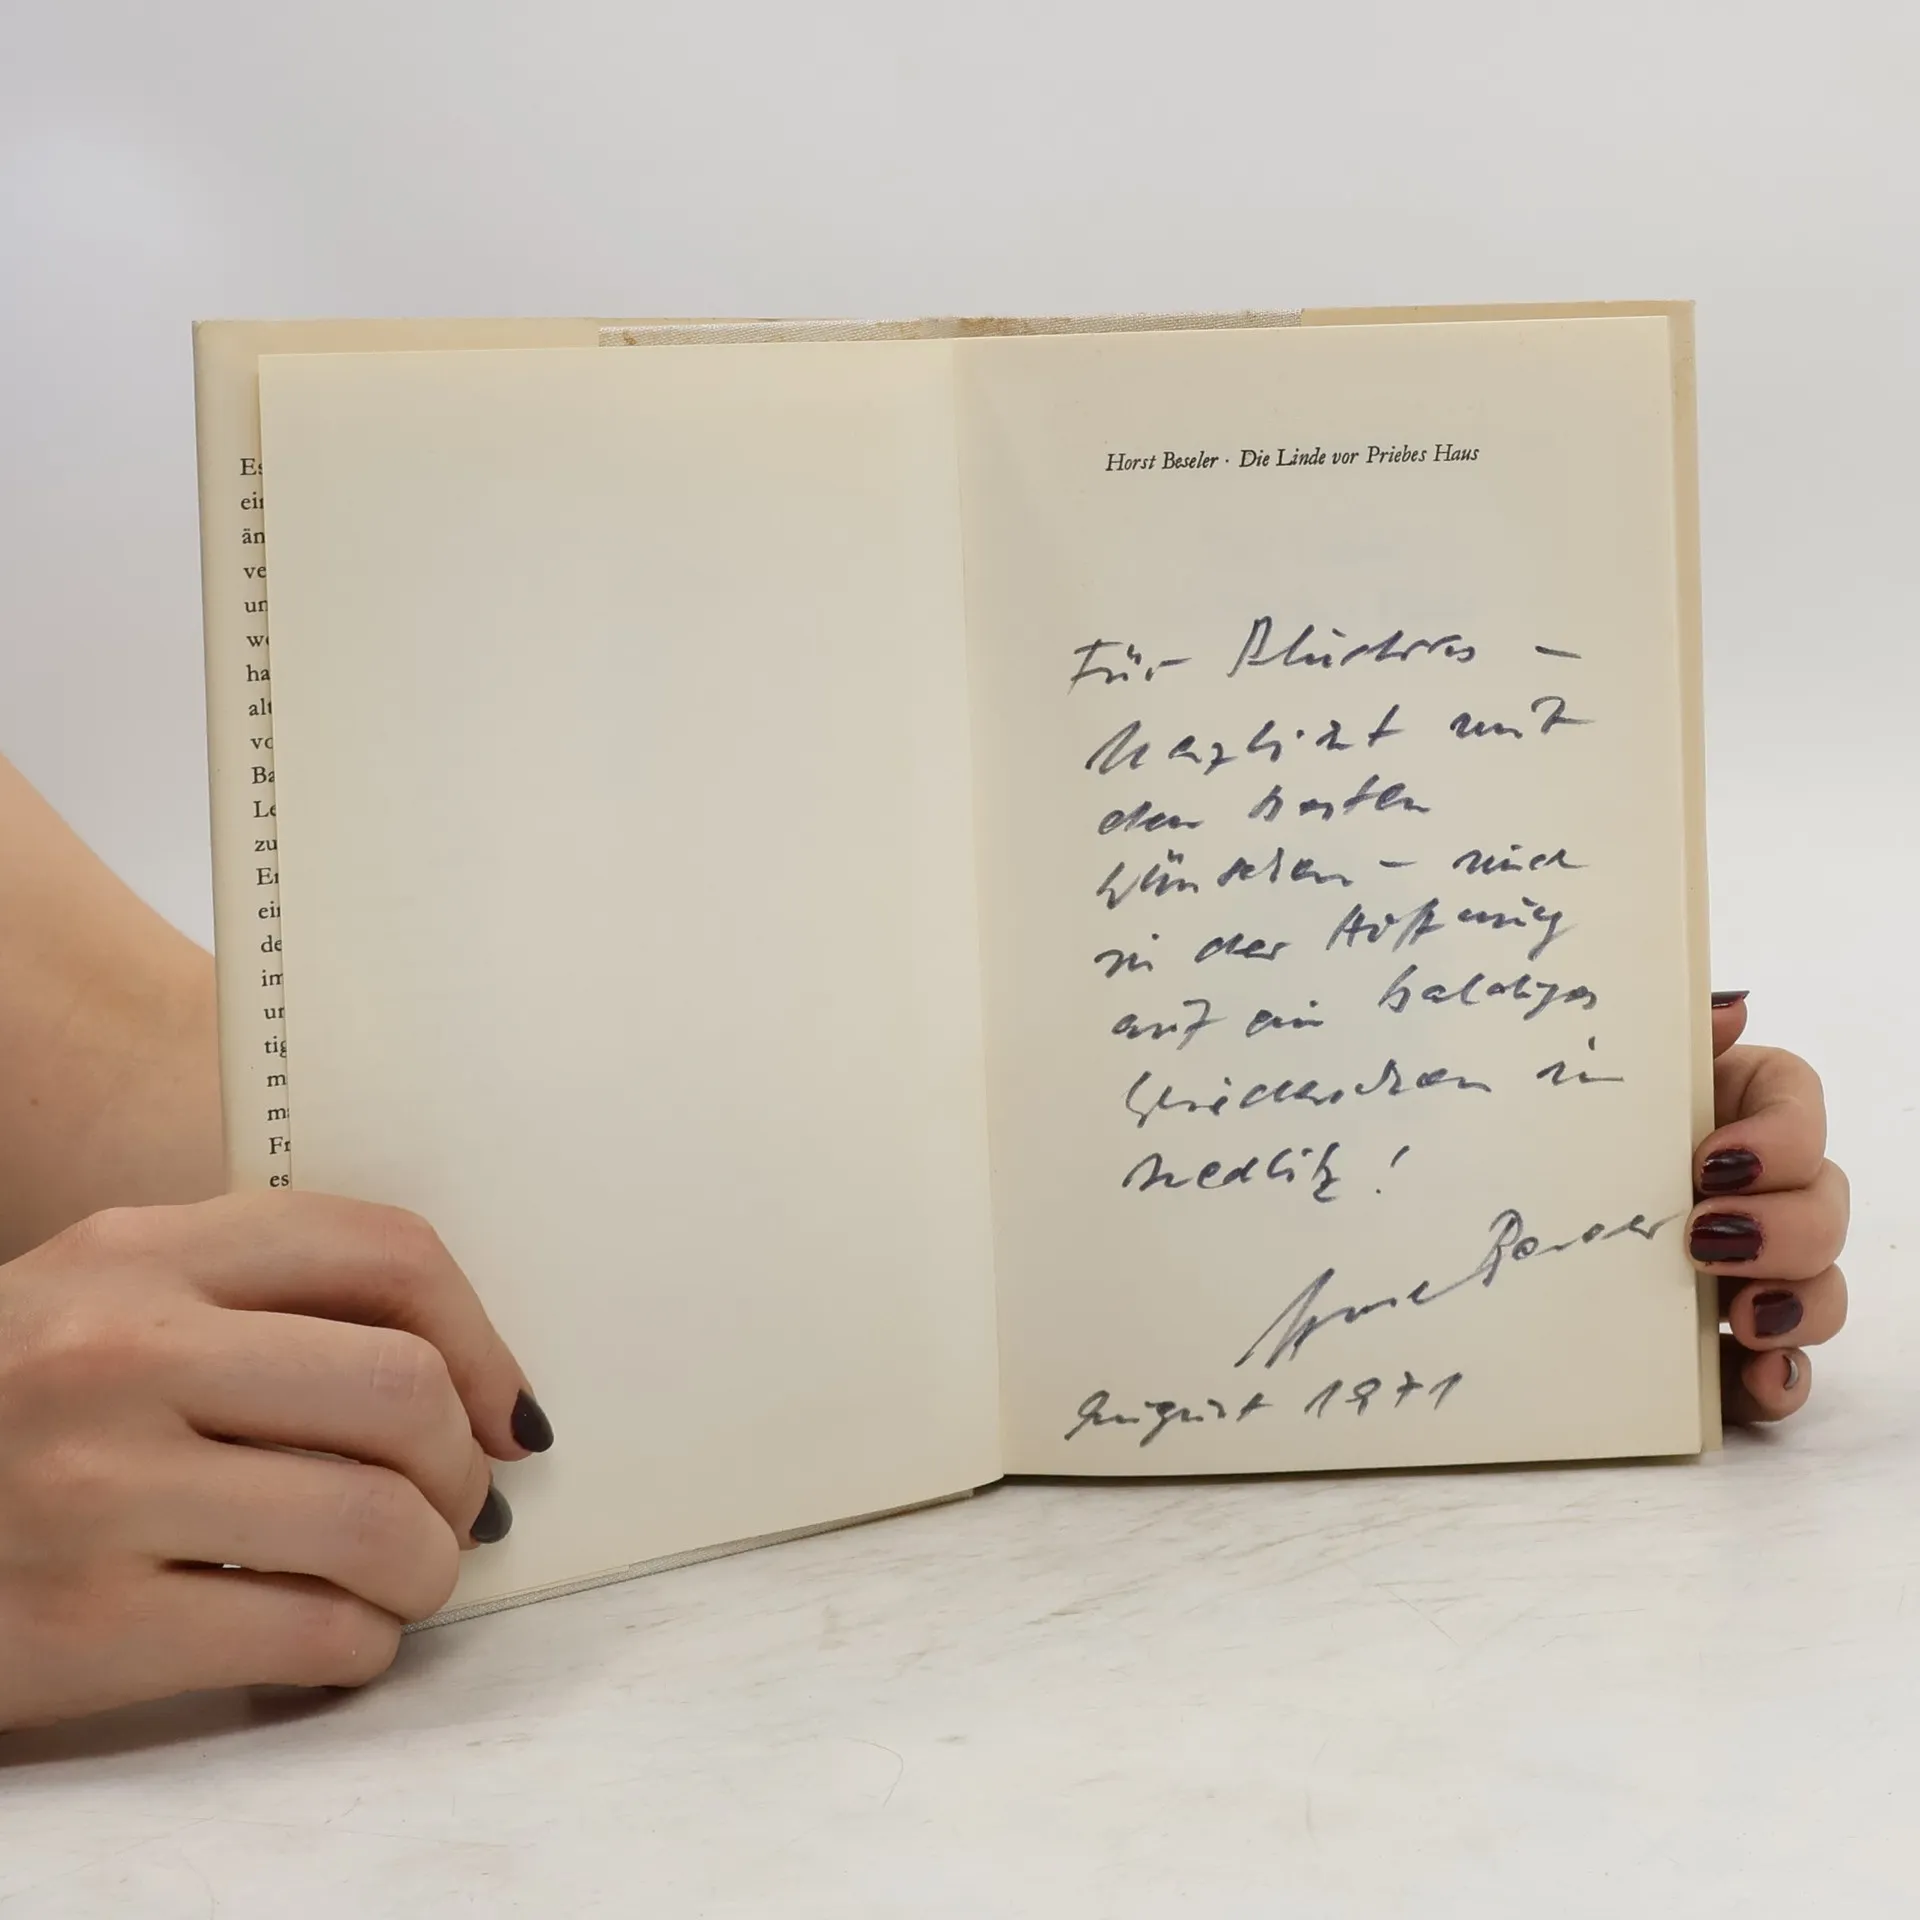 Es
ein
än
ve
un
we
ha
alt
vo
Ba
Le
zu
Er
ein
de
im
un
tig
m
ma
Fr
es
Horst Beseler · Die Linde vor Priebes Haus
Für —
herzlichst mit
den besten
Wünschen – und
in der Hoffnung
auf ein baldiges
Wiedersehen in
Nedlitz!
Horst Beseler
August 1971